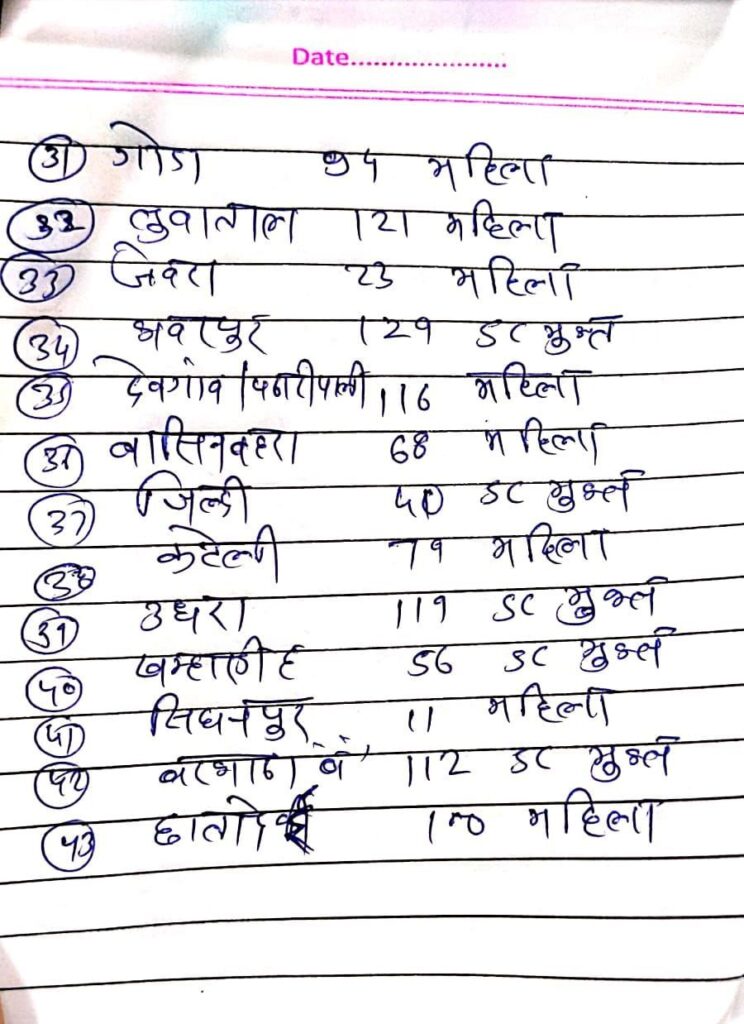 Date....................
31 गोडा 94 महिला
32 लुवाताल 121 महिला
33 जेवरा 23 महिला
34 भवरपुर 129 SC मुक्त
35 देवगांव / पनारीपाली 116 महिला
36 बासिनबहरा 68 महिला
37 जिल्दी 40 SC मुक्त
38 कटेली 79 महिला
39 उधरा 119 SC मुक्त
40 खम्हारडीह 56 SC मुक्त
41 सिंघनपुर 11 महिला
42 112 SC मुक्त
43 महिला